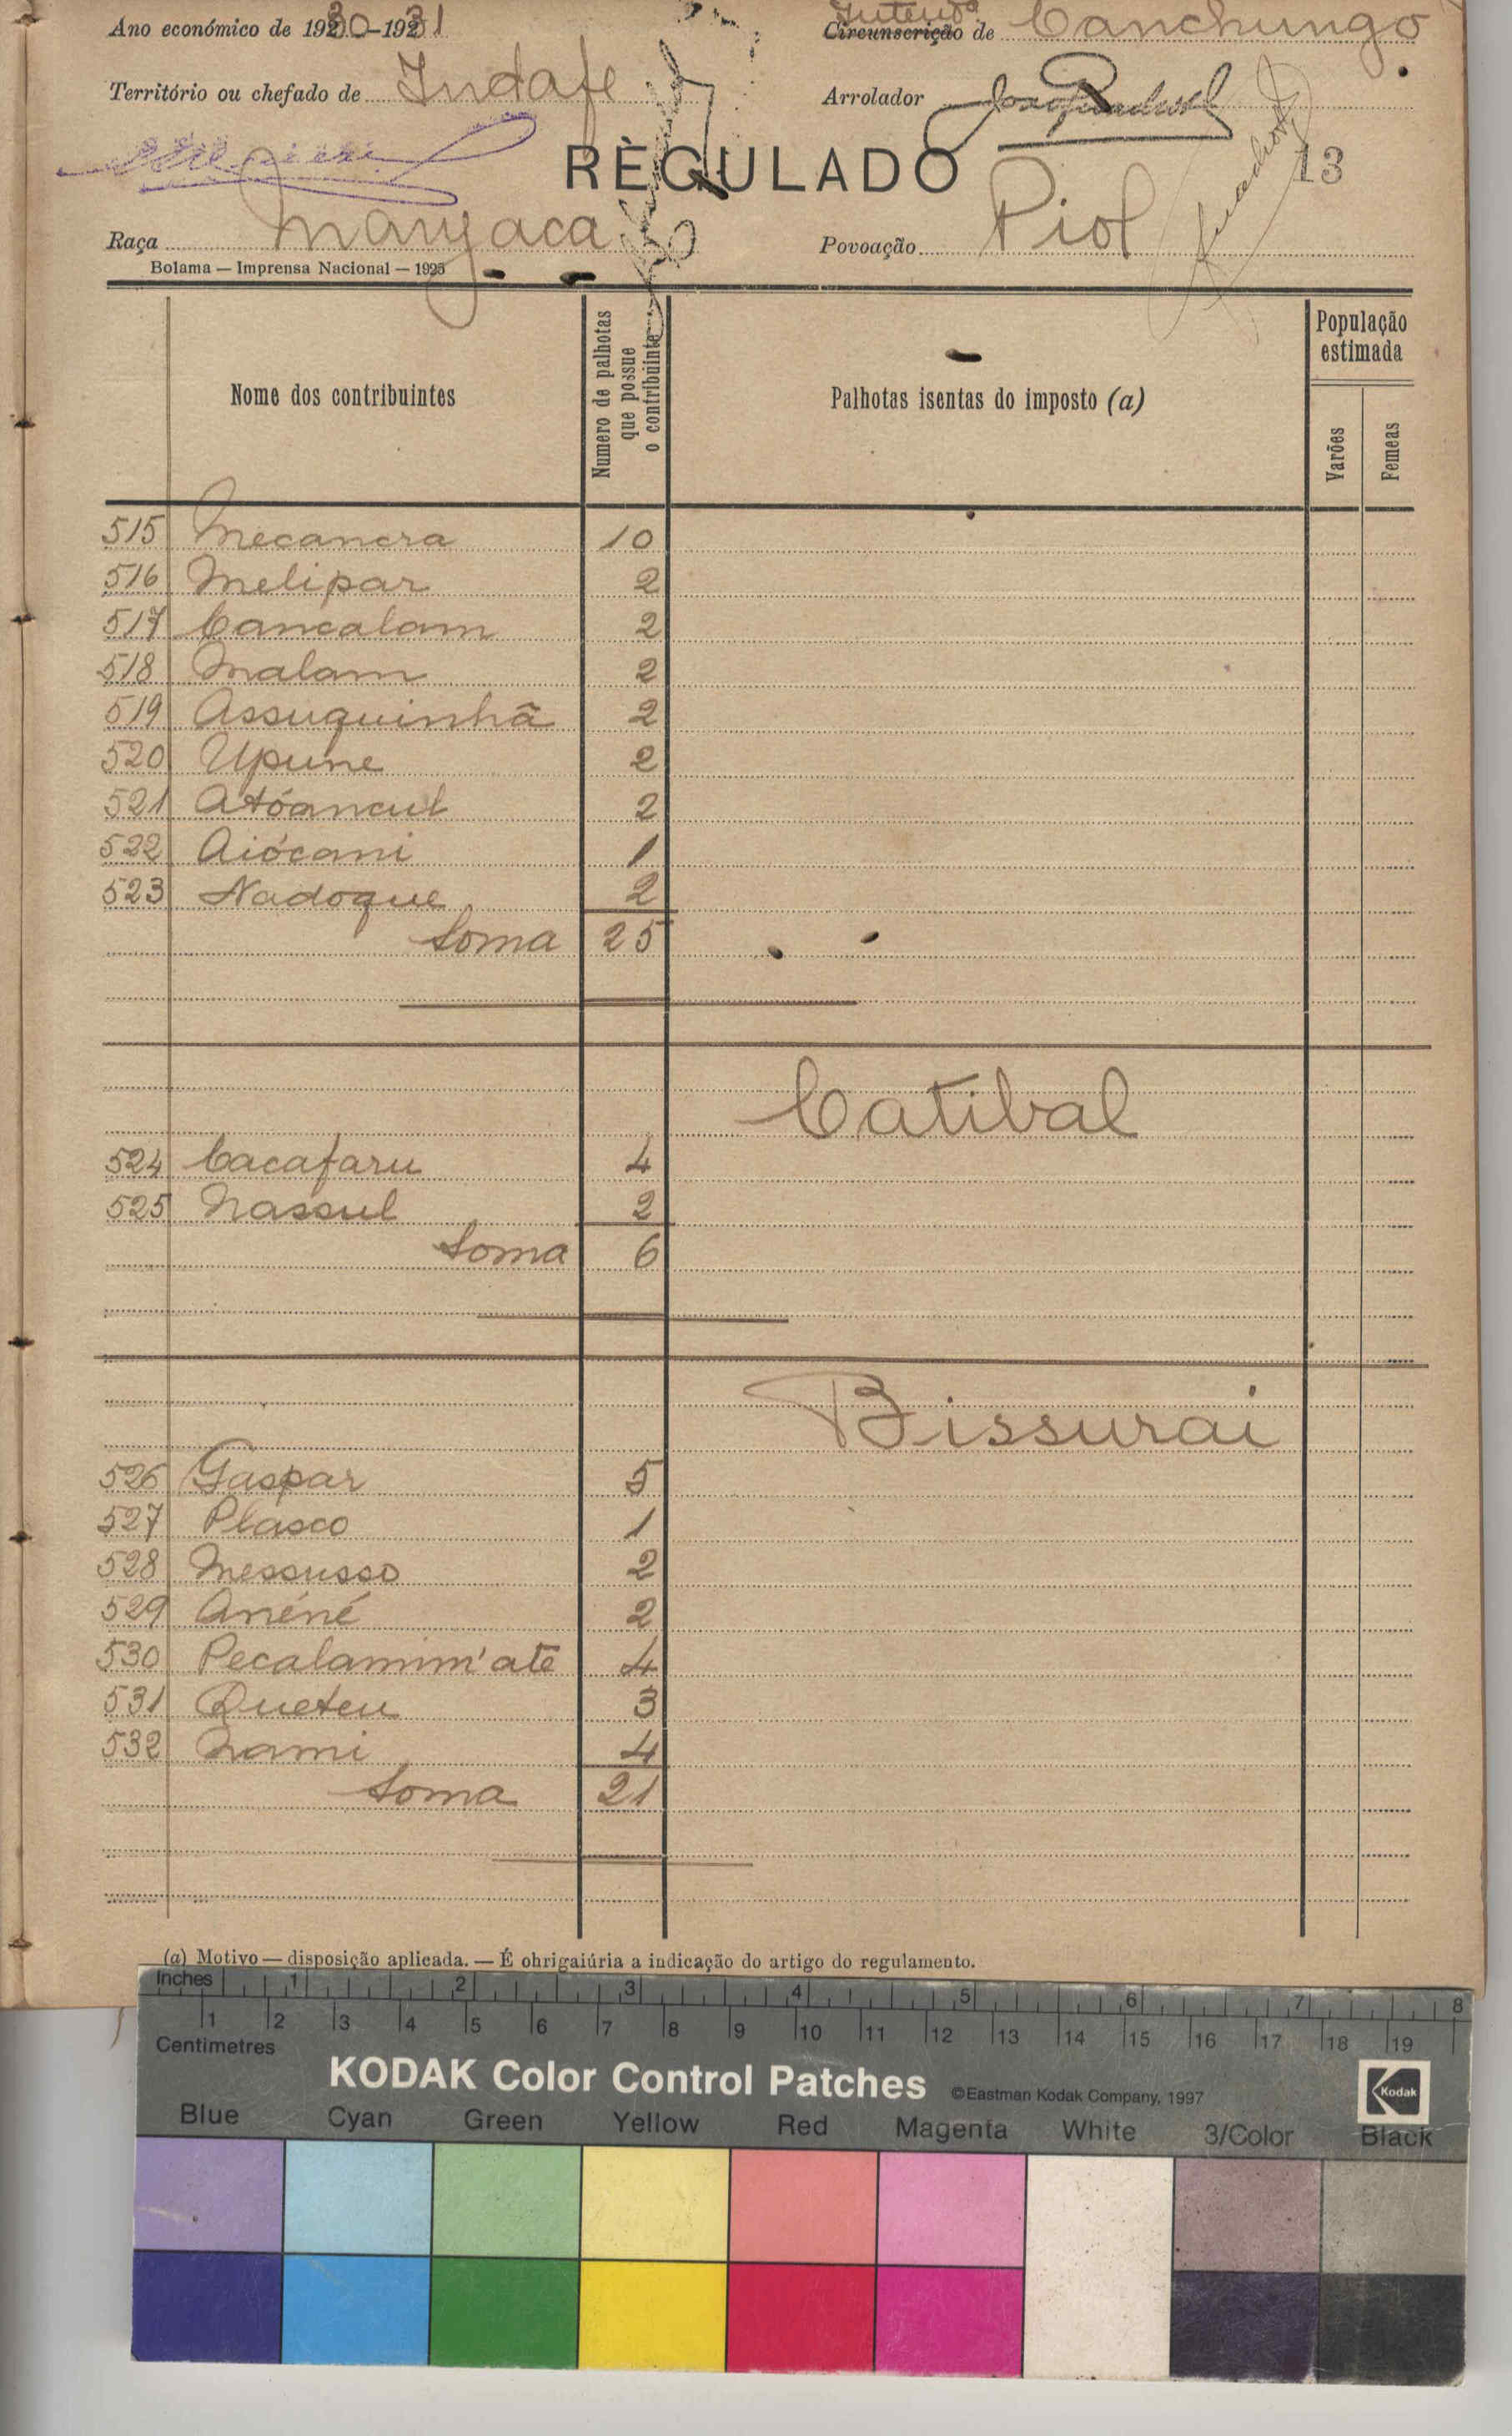 Ano económico de 1930-1931
Intend.ª
Circunscrição de Canchungo
Território ou chefado de Indafe
Arrolador
RÈGULADO
13
Raça Manjaca
Povoação Piol
Bolama — Imprensa Nacional — 1925
Nome dos contribuintes
Numero de palhotas
que possue
o contribuinte
Palhotas isentas do imposto (a)
População
estimada
Varões
Femeas
515 Mecancra 10
516 Melipar 2
517 Cancalam 2
518 Malam 2
519 Assuquinhã 2
520 Upune 2
521 Atóancul 2
522 Aiócani 1
523 Nadoque 2
Soma 25
Catibal
524 Cacafaru 4
525 Nassul 2
Soma 6
Bissurai
526 Gaspar 5
527 Plasco 1
528 Messusso 2
529 Anéné 2
530 Pecalamim'ate 4
531 Queteu 3
532 Nami 4
Soma 21
(a) Motivo — disposição aplicada. — É obrigaiúria a indicação do artigo do regulamento.
Inches 1 2 3 4 5 6 7 8
1 2 3 4 5 6 7 8 9 10 11 12 13 14 15 16 17 18 19
Centimetres
KODAK Color Control Patches ©Eastman Kodak Company, 1997
Kodak
Blue Cyan Green Yellow Red Magenta White 3/Color Black